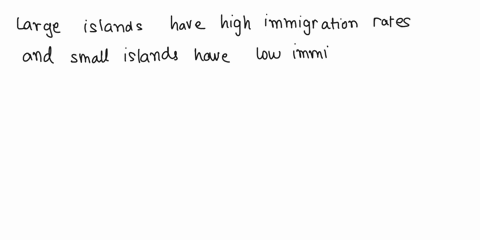 Large islands have high immigration rates
and small islands have low immi